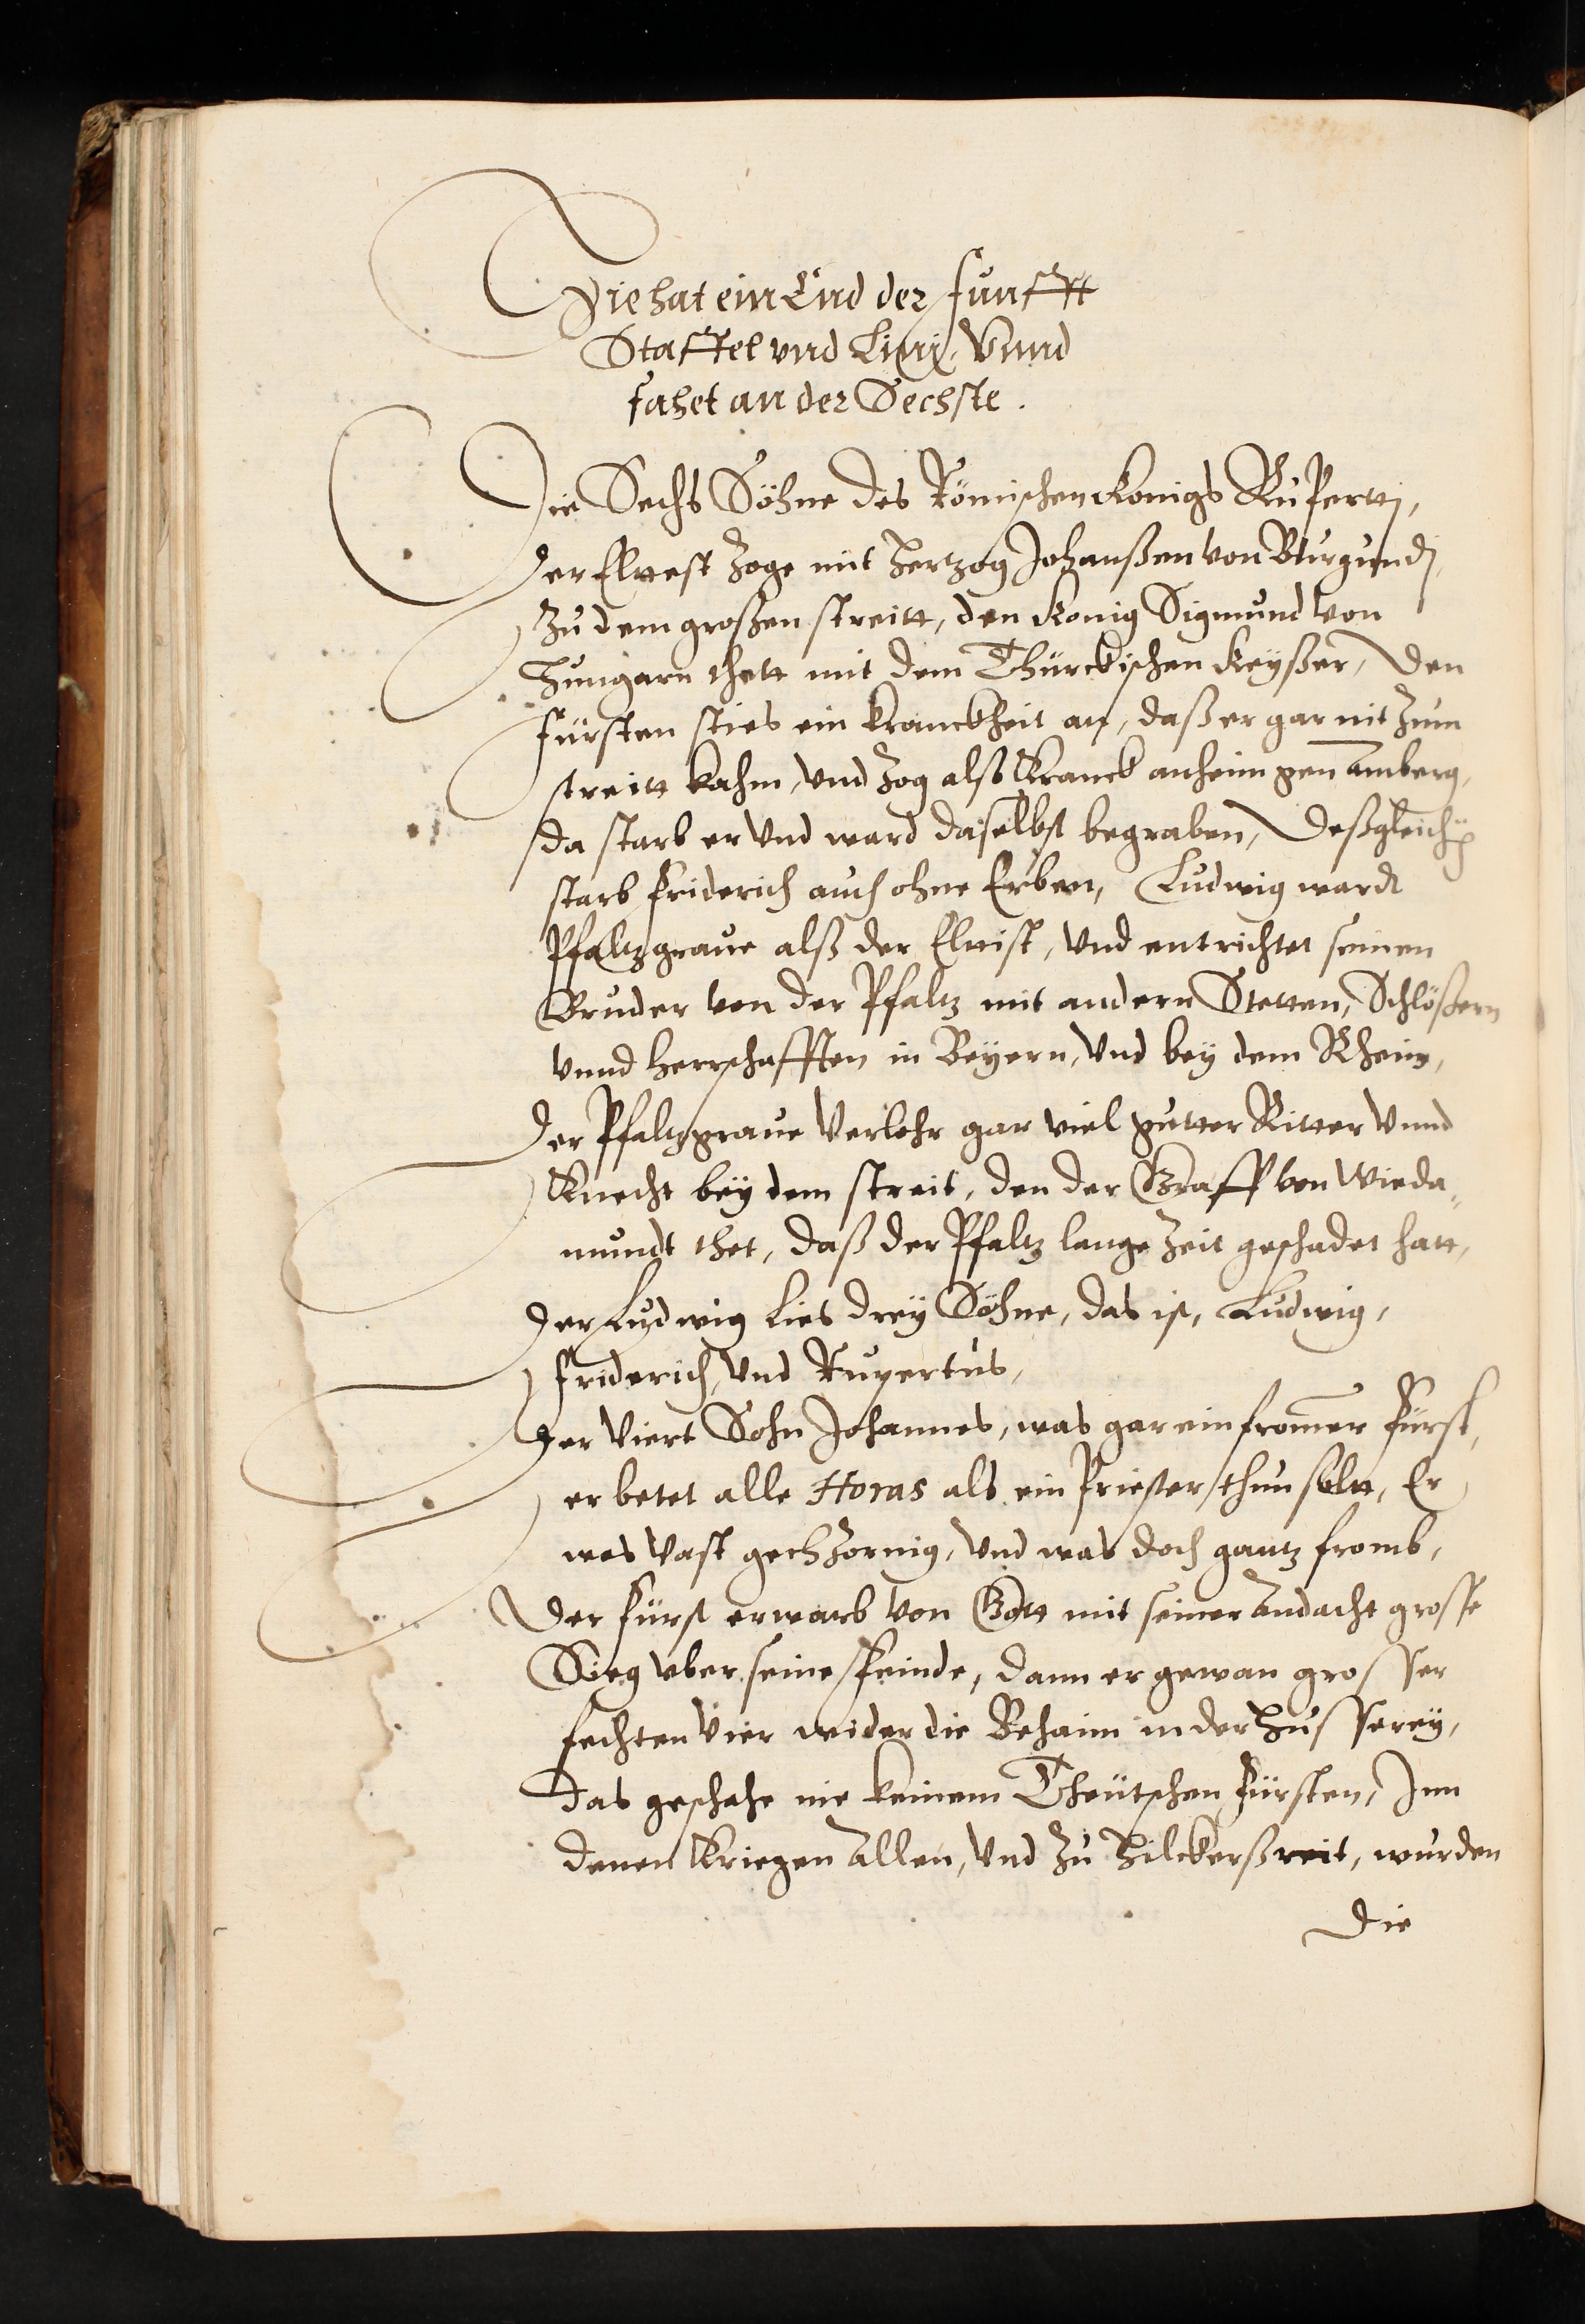 Hie hat ein End der funfft
Staffel vnd Lini, Vnnd
fahet an der Sechste.
Die Sechs Söhne des Römischen Konigs Ruperti,
der Eltest zoge mit Hertzog Johanßen von Burgundj,
zu dem großen streitt, den Konig Sigmund von
Hungarn thett mit dem Thürckischen Keyßer, Den
fürsten sties ein kranckheit an, daß er gar nit zum
streitt kahm, vnd zog alß Kranck anheim gen Amberg,
da starb er vnd ward daselbst begraben, Deßgleichen
starb friderich auch ohne Erben, Ludwig wardt
Pfaltzgraue alß der Eltist, vnd entrichtet seinen
Bruder von der Pfaltz mit andern Stetten, Schlößern
vnnd herrschafften in Beyern, vnd bey dem Rhein,
Der Pfaltzgraue Verlohr gar viel gutter Ritter vnnd
Knecht bey dem streit, den der Graff von Wieda-
mundt thet, daß der Pfaltz lange zeit geschadet hatt,
Der Ludwig lies drey Söhne, das ist, Ludwig,
friderich, vnd Rupertus,
Der Viert Sohn Johannes, was gar ein from̄er fürst,
er betet alle Horas als ein Priester thun soltt, Er
was Vast gechzornig, vnd was doch gantz fromb,
Der fürst erwarb von Gott mit seiner Andacht grosse
Sieg vber seine feinde, dann er gewan grosser
fechten vier wider die Behaim in der Husserey,
Das geschahe nie keinem Theutschen fürsten, Inn
denen Kriegen allen, vnd zu Hilckerßreit, wurden
Die